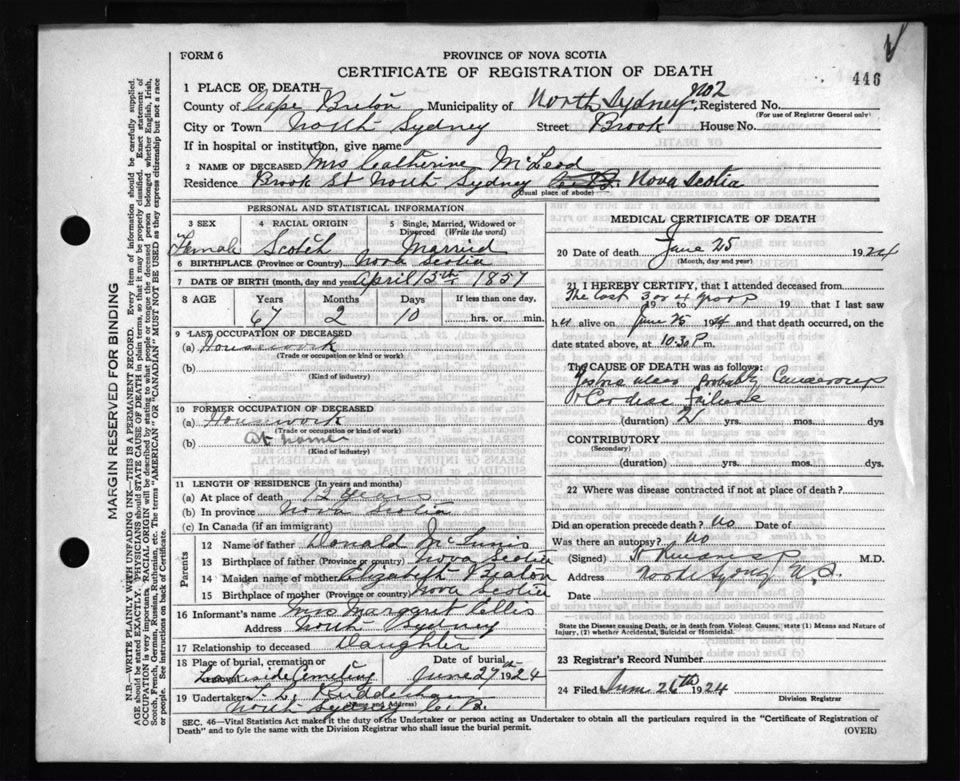 FORM 6
PROVINCE OF NOVA SCOTIA
CERTIFICATE OF REGISTRATION OF DEATH
446
1 PLACE OF DEATH—
County of Cape Breton Municipality of North Sydney Registered No.
(For use of Registrar General only)
City or Town North Sydney Street Brook House No.
If in hospital or institution, give name
2 NAME OF DECEASED Mrs Catherine McLeod
Residence Brook St North Sydney Nova Scotia
(Usual place of abode)
MARGIN RESERVED FOR BINDING
N.B.—WRITE PLAINLY WITH UNFADING INK—THIS IS A PERMANENT RECORD. Every item of information should be carefully supplied.
AGE should be stated EXACTLY. PHYSICIANS should STATE CAUSE OF DEATH in plain terms, so that it may be properly classified. Exact statement of
OCCUPATION is very important. RACIAL ORIGIN will be described by stating to what people or tongue the deceased person belonged whether English, Irish,
Scotch, French, German, Russian, Ruthenian, etc. The terms "AMERICAN" OR "CANADIAN" MUST NOT BE USED as they express citizenship but not a race
or people. See instructions on back of Certificate.
PERSONAL AND STATISTICAL INFORMATION
3 SEX 4 RACIAL ORIGIN 5 Single, Married, Widowed or
Divorced (Write the word)
Female Scotch Married
6 BIRTHPLACE (Province or Country) Nova Scotia
7 DATE OF BIRTH (month, day and year) April 15th 1857
8 AGE Years Months Days If less than one day,
67 2 10 hrs. or min.
9 LAST OCCUPATION OF DECEASED
(a) Housework
(Trade or occupation or kind of work)
(b)
(Kind of industry)
10 FORMER OCCUPATION OF DECEASED
(a) Housework
(Trade or occupation or kind of work)
(b) At home
(Kind of industry)
11 LENGTH OF RESIDENCE (In years and months)
(a) At place of death 12 years
(b) In province Nova Scotia
(c) In Canada (if an immigrant)
Parents
12 Name of father Donald McInnis
13 Birthplace of father (Province or country) Nova Scotia
14 Maiden name of mother Elizabeth Beaton
15 Birthplace of mother (Province or country) Nova Scotia
16 Informant's name Mrs Margaret
Address North Sydney
17 Relationship to deceased Daughter
18 Place of burial, cremation or Date of burial
Lakeside Cemetery June 27th 1924
19 Undertaker
(Name and Address)
North Sydney C.B.
MEDICAL CERTIFICATE OF DEATH
20 Date of death June 25 1924
(Month, day and year)
21 I HEREBY CERTIFY, that I attended deceased from
The last 3 or 4 19 to 19 that I last saw
her alive on June 25 1924 and that death occurred, on the
date stated above, at 10.30 P.m.
The CAUSE OF DEATH was as follows:
probably Cancerous
Cardiac Failure
(duration) yrs. mos. dys
CONTRIBUTORY
(Secondary)
(duration) yrs. mos. dys.
22 Where was disease contracted if not at place of death?
Did an operation precede death? No Date of
Was there an autopsy? No
(Signed) M.D.
Address North Sydney N.S.
Date
State the Disease causing Death, or in death from Violent. Causes, state (1) Means and Nature of
Injury, (2) whether Accidental, Suicidal or Homicidal.
23 Registrar's Record Number
24 Filed June 26th 1924
Division Registrar
SEC. 46—Vital Statistics Act makes it the duty of the Undertaker or person acting as Undertaker to obtain all the particulars required in the "Certificate of Registration of
Death" and to fyle the same with the Division Registrar who shall issue the burial permit.
(OVER)